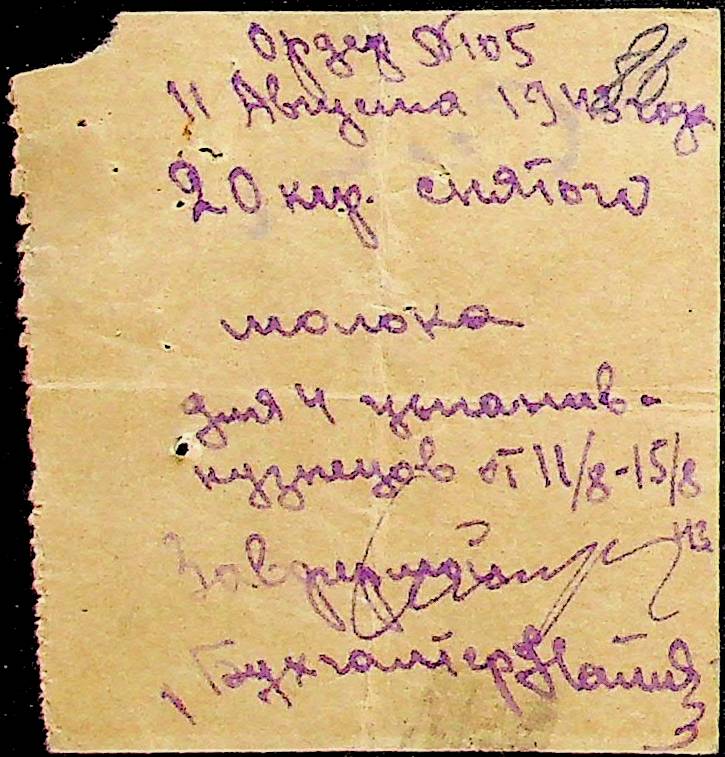 Ордер №105
11 Августа 1943 года
20 клр. снятого
молока
для 4 цыганив-
кузнецов от 11/8-15/8
43
Завфермой
Бухгалтер